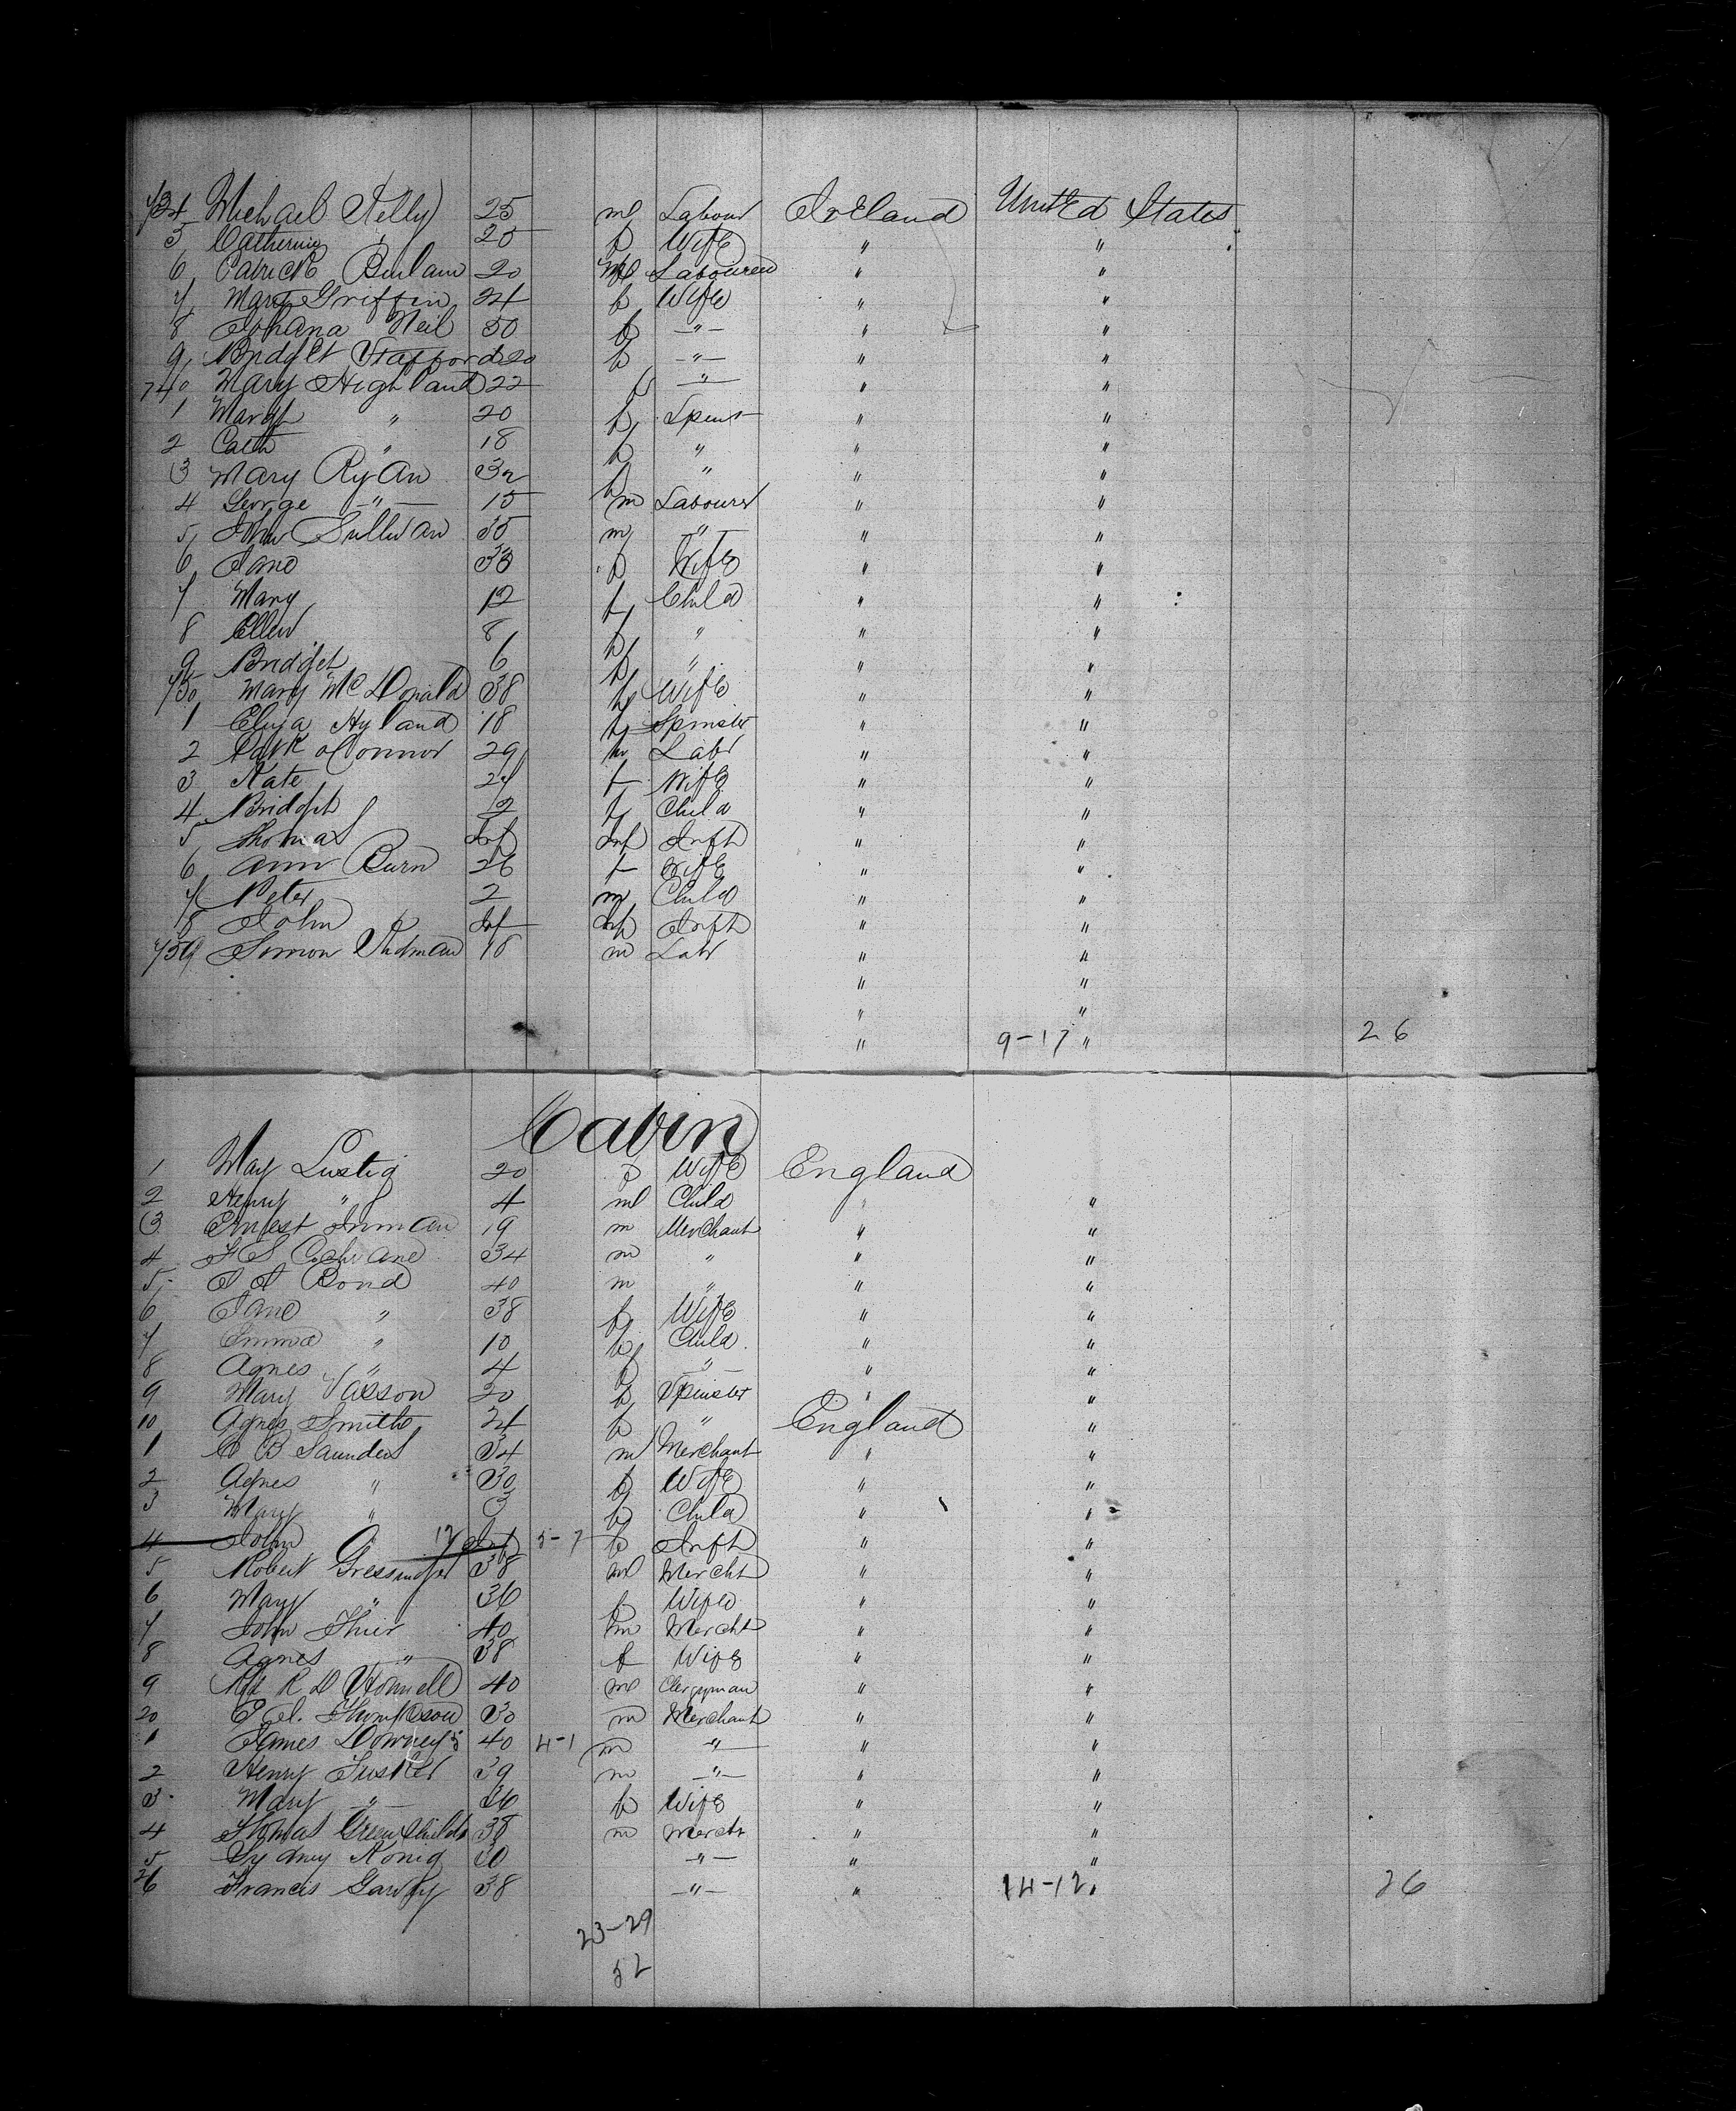 734 Michael Kelly 25 m Labour Ireland United States
5 Catherine " 25 f Wife " "
6 Patrick 20 M Labourer " "
7 Mary Griffin 24 f Wife " "
8 Johana Neil 50 f -"- " "
9 Bridget Stafford 20 f -"- " "
740 Mary Highland 22 f -"- " "
1 Margt " 20 f Spins " "
2 Cath " 18 f " " "
3 Mary Ryan 32 f " " "
4 George -"- 15 m Labourer " "
5 John Sullivan 35 m " " "
6 Jane 33 f Wife " "
7 Mary 12 f Child " "
8 Ellen 8 f " " "
9 Bridget 6 f " " "
750 Mary McDonald 38 f Wife " "
1 Eliza Hyland 18 f Spinster " "
2 Patk oConnor 29 m Labr " "
3 Kate 27 f Wife " "
4 Bridget 12 f Child " "
5 Thomas Inf Inf Inft " "
6 Ann Burn 26 f Wife " "
7 Peter 2 m Child " "
8 John Inf Inf Inft " "
759 Simon 18 m Labr " "
" "
" "
" 9-17 " 26
Cabin
1 May Lustig 20 f Wife England
2 Henry " 4 m Child " "
3 Ernest Inman 19 m Merchant " "
4 F S Cochrane 34 m " " "
5 Bond 40 m " " "
6 Jane " 38 f Wife " "
7 Emma " 10 f Child " "
8 Agnes " 4 f -"- " "
9 Mary 20 f Spinster " "
10 Agnes Smith 24 f " England "
1 C B Saunders 34 m Merchant " "
2 Agnes " 30 f Wife " "
3 Mary " 3 f Child " "
4 John Inf 5-7 f Inft " "
5 Robert 38 m Mercht " "
6 Mary " 36 f Wife " "
7 John 40 m Mercht " "
8 Agnes " 38 f Wife " "
9 R D 40 m Clergyman " "
20 Thompson 30 m Merchant " "
1 James Downey 40 4-1 m -"- " "
2 Henry Tusker 39 m -"- " "
3 Mary -"- 36 f Wife " "
4 Thomas Greenshields 38 m Mercht " "
5 Sydney Konig 30 -"- " "
26 Francis 38 -"- " 14-12 " 26
23-29
52